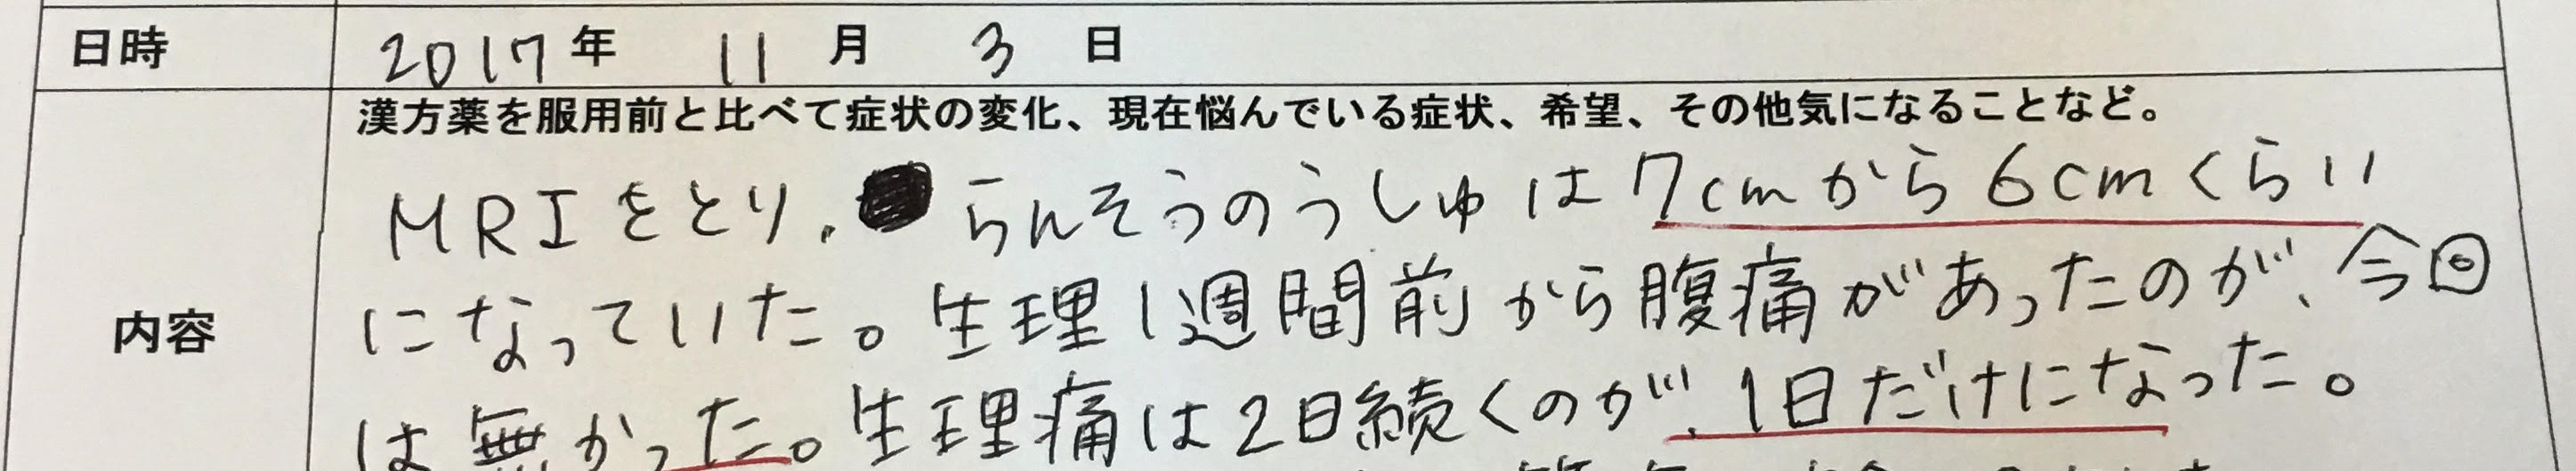 日時 2017年 11月 3日
漢方薬を服用前と比べて症状の変化、現在悩んでいる症状、希望、その他気になることなど。
MRIをとり、らんそうのうしゅは7cmから6cmくらい
内容 になっていた。生理1週間前から腹痛があったのが、今回
は無かった。生理痛は2日続くのが、1日だけになった。